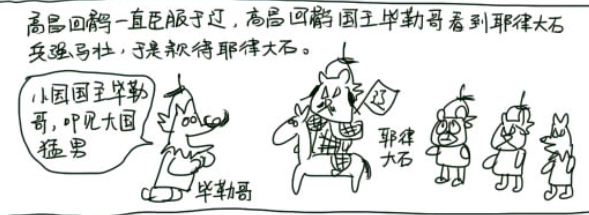 高昌回鹘一直臣服于辽,高昌回鹘国王毕勒哥看到耶律大石
兵强马壮,于是款待耶律大石。
小国国王毕勒
哥,叩见大国
猛男
辽
耶律
大石
毕勒哥